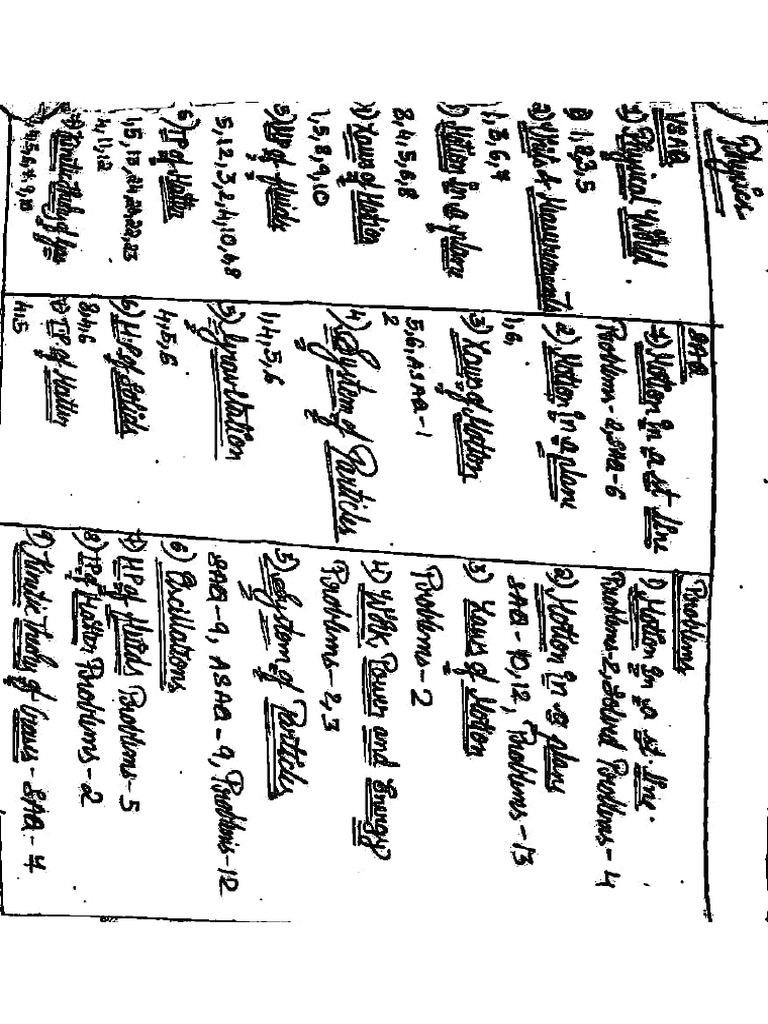 Physics
VSAQ
1) Physical World
1, 2, 3, 5
2) Units & Measurements
1, 3, 6, 7
3) Motion in a plane
3, 4, 5, 6, 8
4) Laws of Motion
1, 5, 8, 9, 10
5) MP of fluids
5, 1 2, 3, 2, 4, 10, 6 8
6) TP of Matter
4, 11, 12
7) Kinetic Theory of
SAQ
1) Motion in a st line
Problems-2, SAQ-6
2) Motion in a plane
1, 6
3) Laws of Motion
5, 6, ASAQ-1
2
4) System of Particles
1, 4, 5, 6
5) Gravitation
4, 5, 6
6) M.P of solids
8, 4, 6
7) T.P. of Matter
4, 5
Problems
1) Motion in a st. line.
Problems-2, Solved Problems-4
2) Motion in a plane
SAQ-10, 12, Problems-13
3) Laws of Motion
Problems-2
4) Work Power and Energy
Problems-2, 3
5) System of Particles
SAQ-9, ASAQ-9, Problems-12
6) Oscillations
7) MP of fluids Problems-5
8) TP of Matter Problems-2
9) Kinetic Theory of Gases-SAQ-4